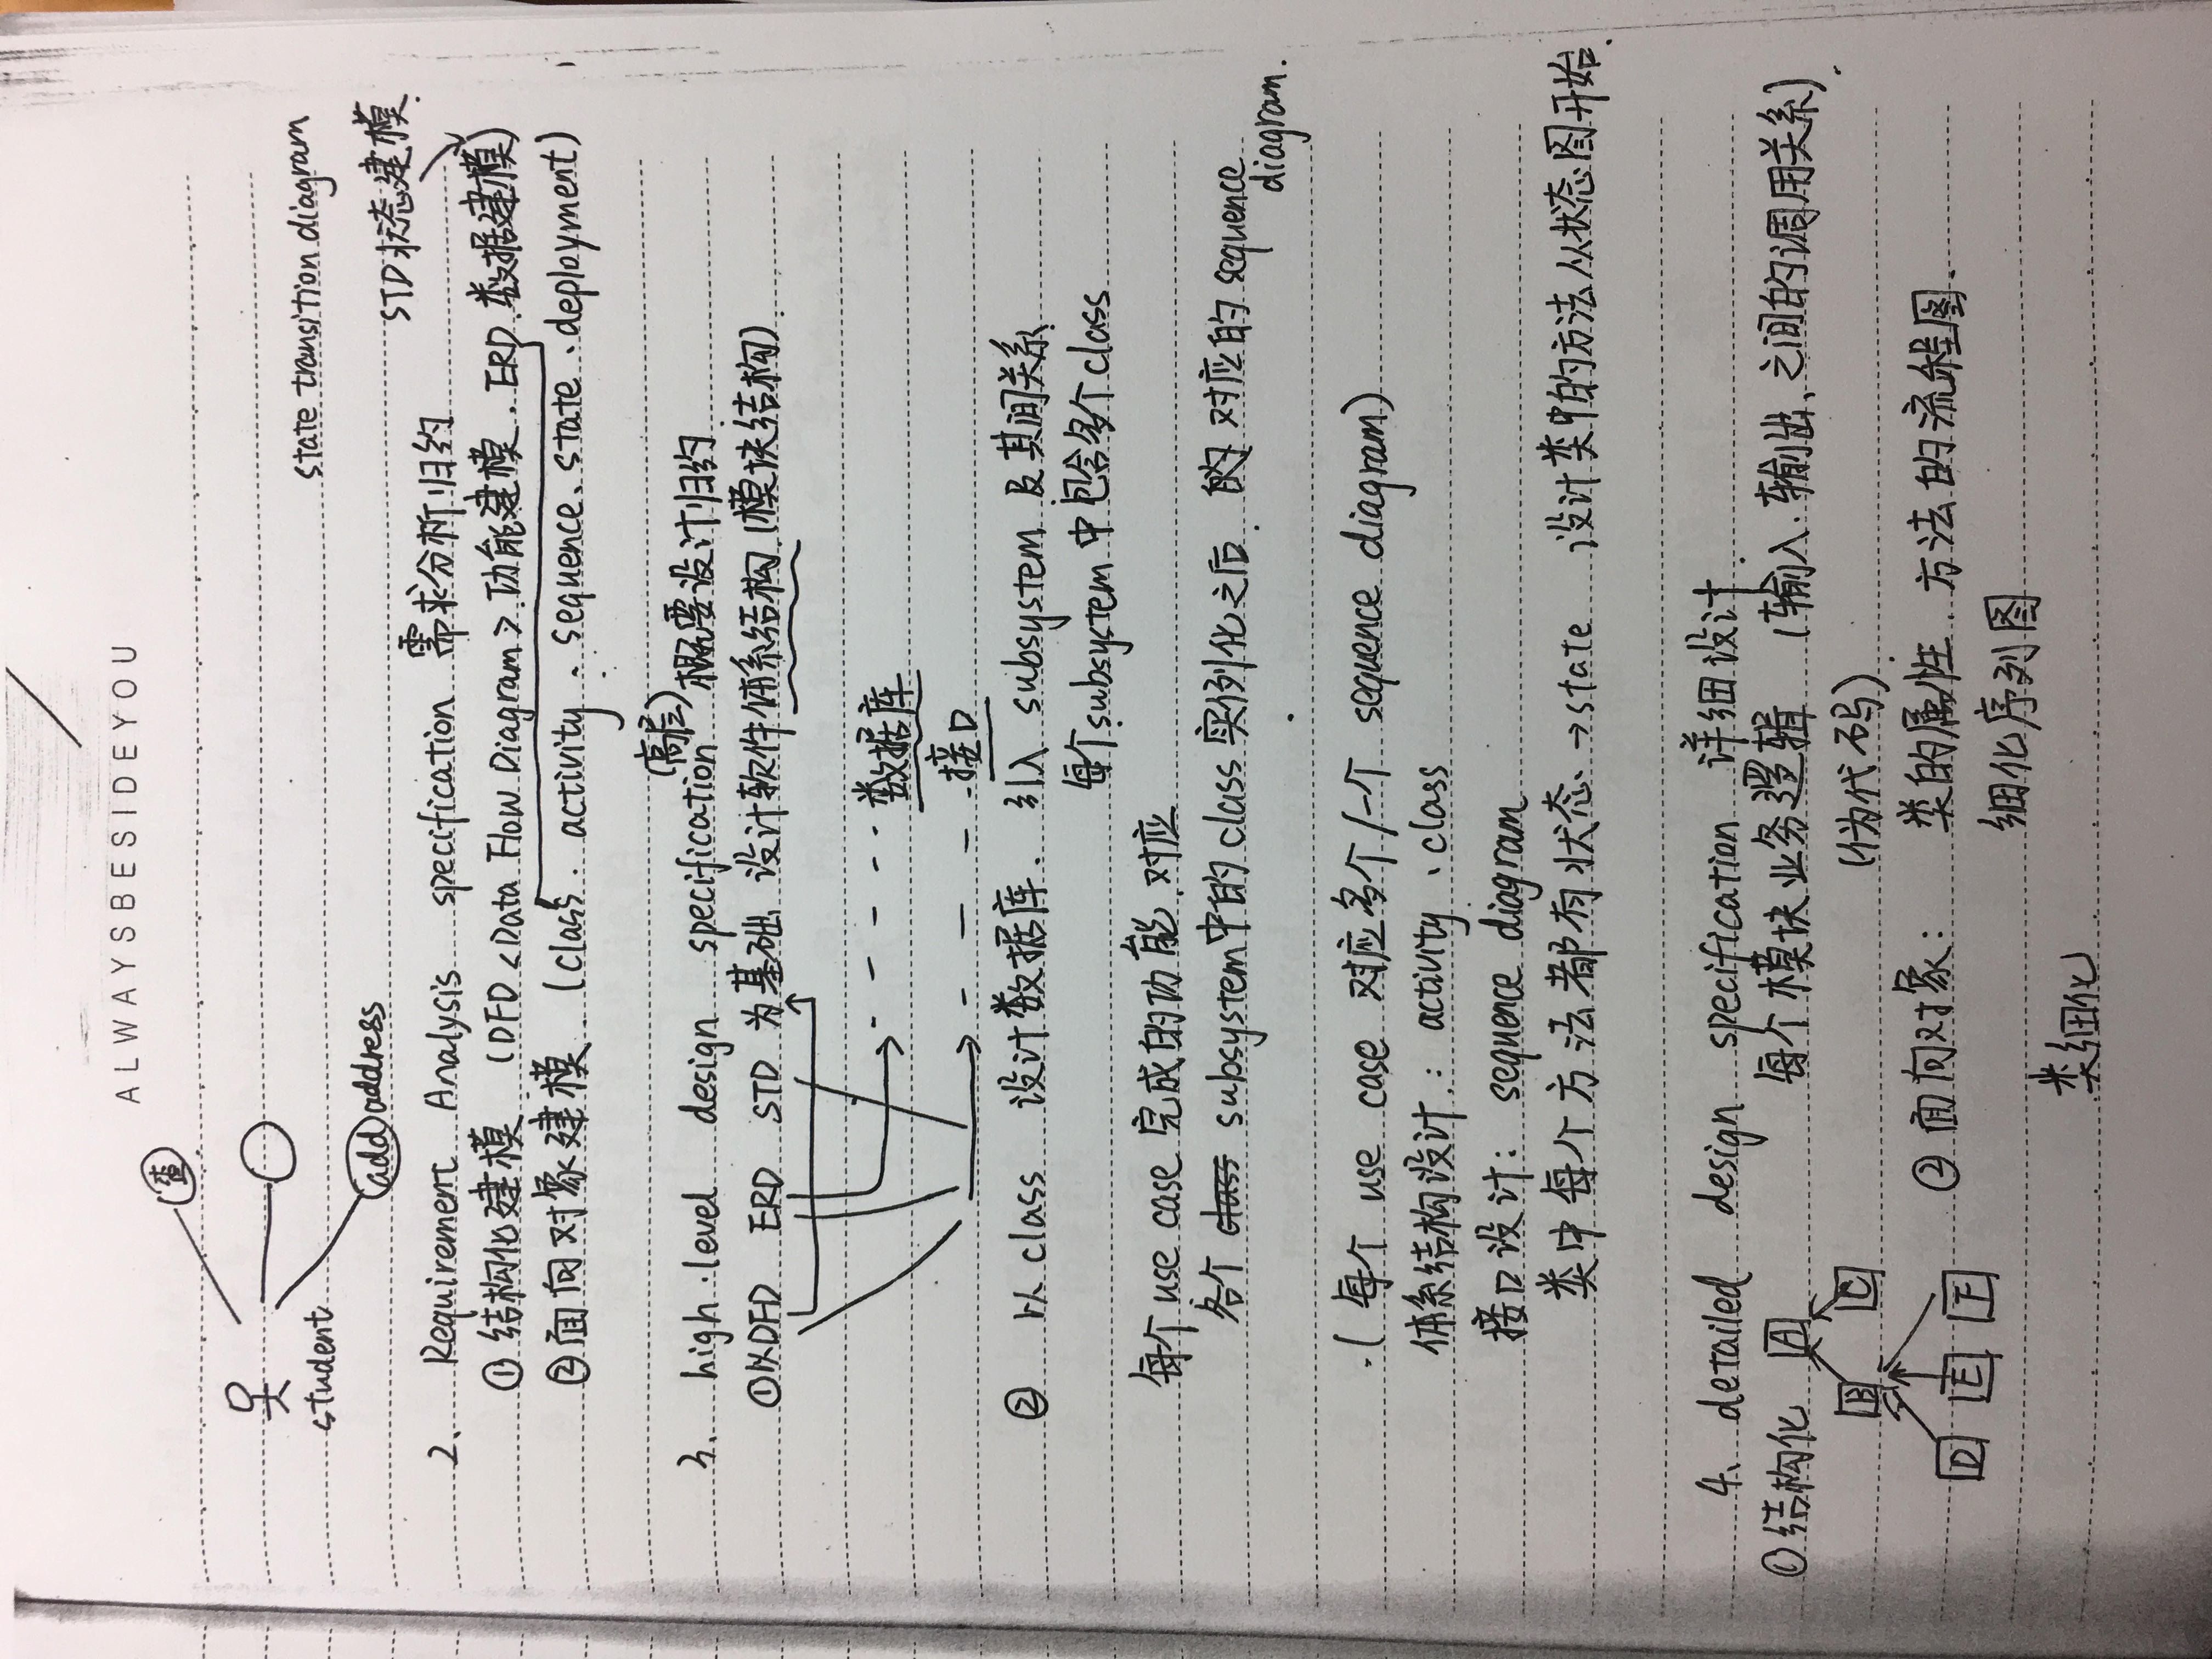 ALWAYSBESIDEYOU
查
student
add address
state transition diagram
STD状态建模
2、 Requirement Analysis specification 需求分析归约
①结构化建模 (DFD <Data Flow Diagram> 功能建模. ERD 数据建模)
②面向对象建模 (class. activity、sequence、state、deployment)
(高层)
3、 high-level design specification 概要设计归约
①以DFD ERD STD 为基础 设计软件体系结构(模块结构)
数据库
接口
② 以class 设计数据库. 引入 subsystem 及其间关系
每个subsystem中包含多个class
每个use case 完成的功能 对应
各个 class subsystem中的class实例化之后 的 对应的 sequence
diagram.
(每个 use case 对应多个/一个 sequence diagram)
体系结构设计: activity、class
接口设计: sequence diagram
类中每个方法都有状态 →state 设计类中的方法从状态图开始
4、 detailed design specification 详细设计.
①结构化 A 每个模块业务逻辑 (输入.输出、之间的调用关系)
B C (伪代码)
②面向对象: 类的属性、方法的流程图.
D E F
细化序列图
类细化